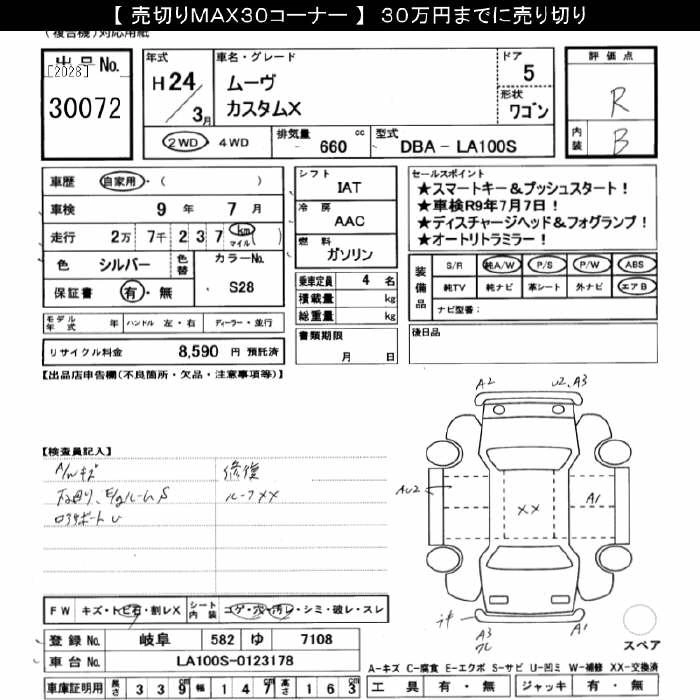 【 売切りMAX30コーナー 】 30万円までに売り切り
(複合機)対応用紙
出品No.
[2028]
30072
年式
H24/3月
車名・グレード
ムーヴ
カスタムX
ドア
5
形状
ワゴン
2WD・4WD
排気量 660 cc
型式 DBA - LA100S
評価点
R
内装
B
車歴 自家用・( )
車検 9年 7月
走行 2万 7千 2 3 7 km マイル ( )
色 シルバー 色替
カラーNo.
S28
保証書 有・無
モデル年式 年 ハンドル 左・右 ディーラー・並行
リサイクル料金 8,590 円 預託済
シフト
IAT
冷房
AAC
燃料
ガソリン
乗車定員 4 名
積載量 kg
総重量 kg
書類期限
月 日
セールスポイント
★スマートキー&プッシュスタート!
★車検R9年7月7日!
★ディスチャージヘッド&フォグランプ!
★オートリトラミラー!
装備品
S/R 純A/W P/S P/W ABS
純TV 純ナビ 革シート 外ナビ エアB
ナビ型番:
後日品
【出品店申告欄(不良箇所・欠品・注意事項等)】
【検査員記入】
A/Wキズ
下廻り、E/gルームS
ロアサポートU
修復
ルーフXX
A2
U2、A3
AU2
A1
XX
A3
A1
FW キズ・トビ石・割レX
シート内装 コゲ・穴・汚レ・シミ・破レ・スレ
登録No. 岐阜 582 ゆ 7108
車台No. LA100S-0123178
車庫証明用 長さ 3 3 9 cm 幅 1 4 7 cm 高さ 1 6 3 cm
スペア
A-キズ C-腐食 E-エクボ S-サビ U-凹ミ W-補修 XX-交換済
工具 有・無 ジャッキ 有・無